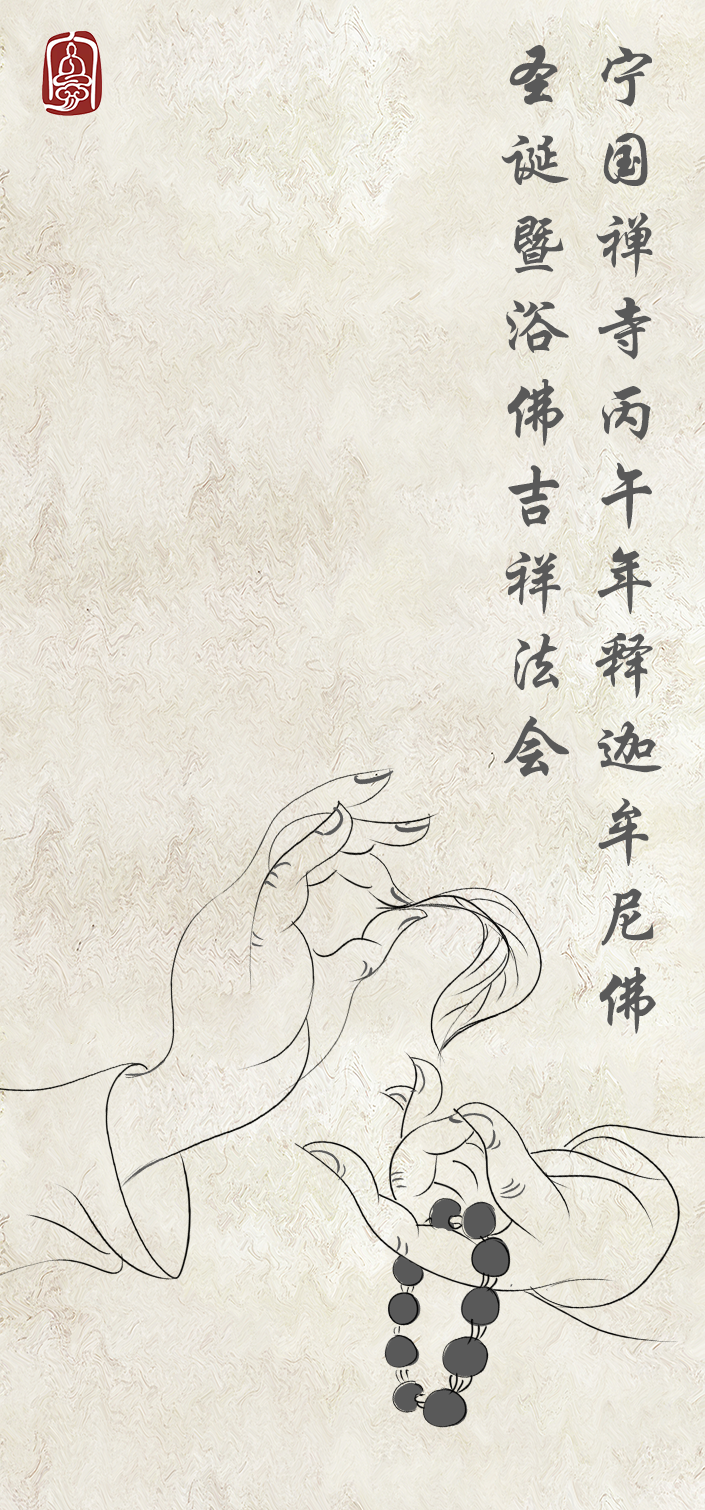 宁国禅寺丙午年释迦牟尼佛
圣诞暨浴佛吉祥法会